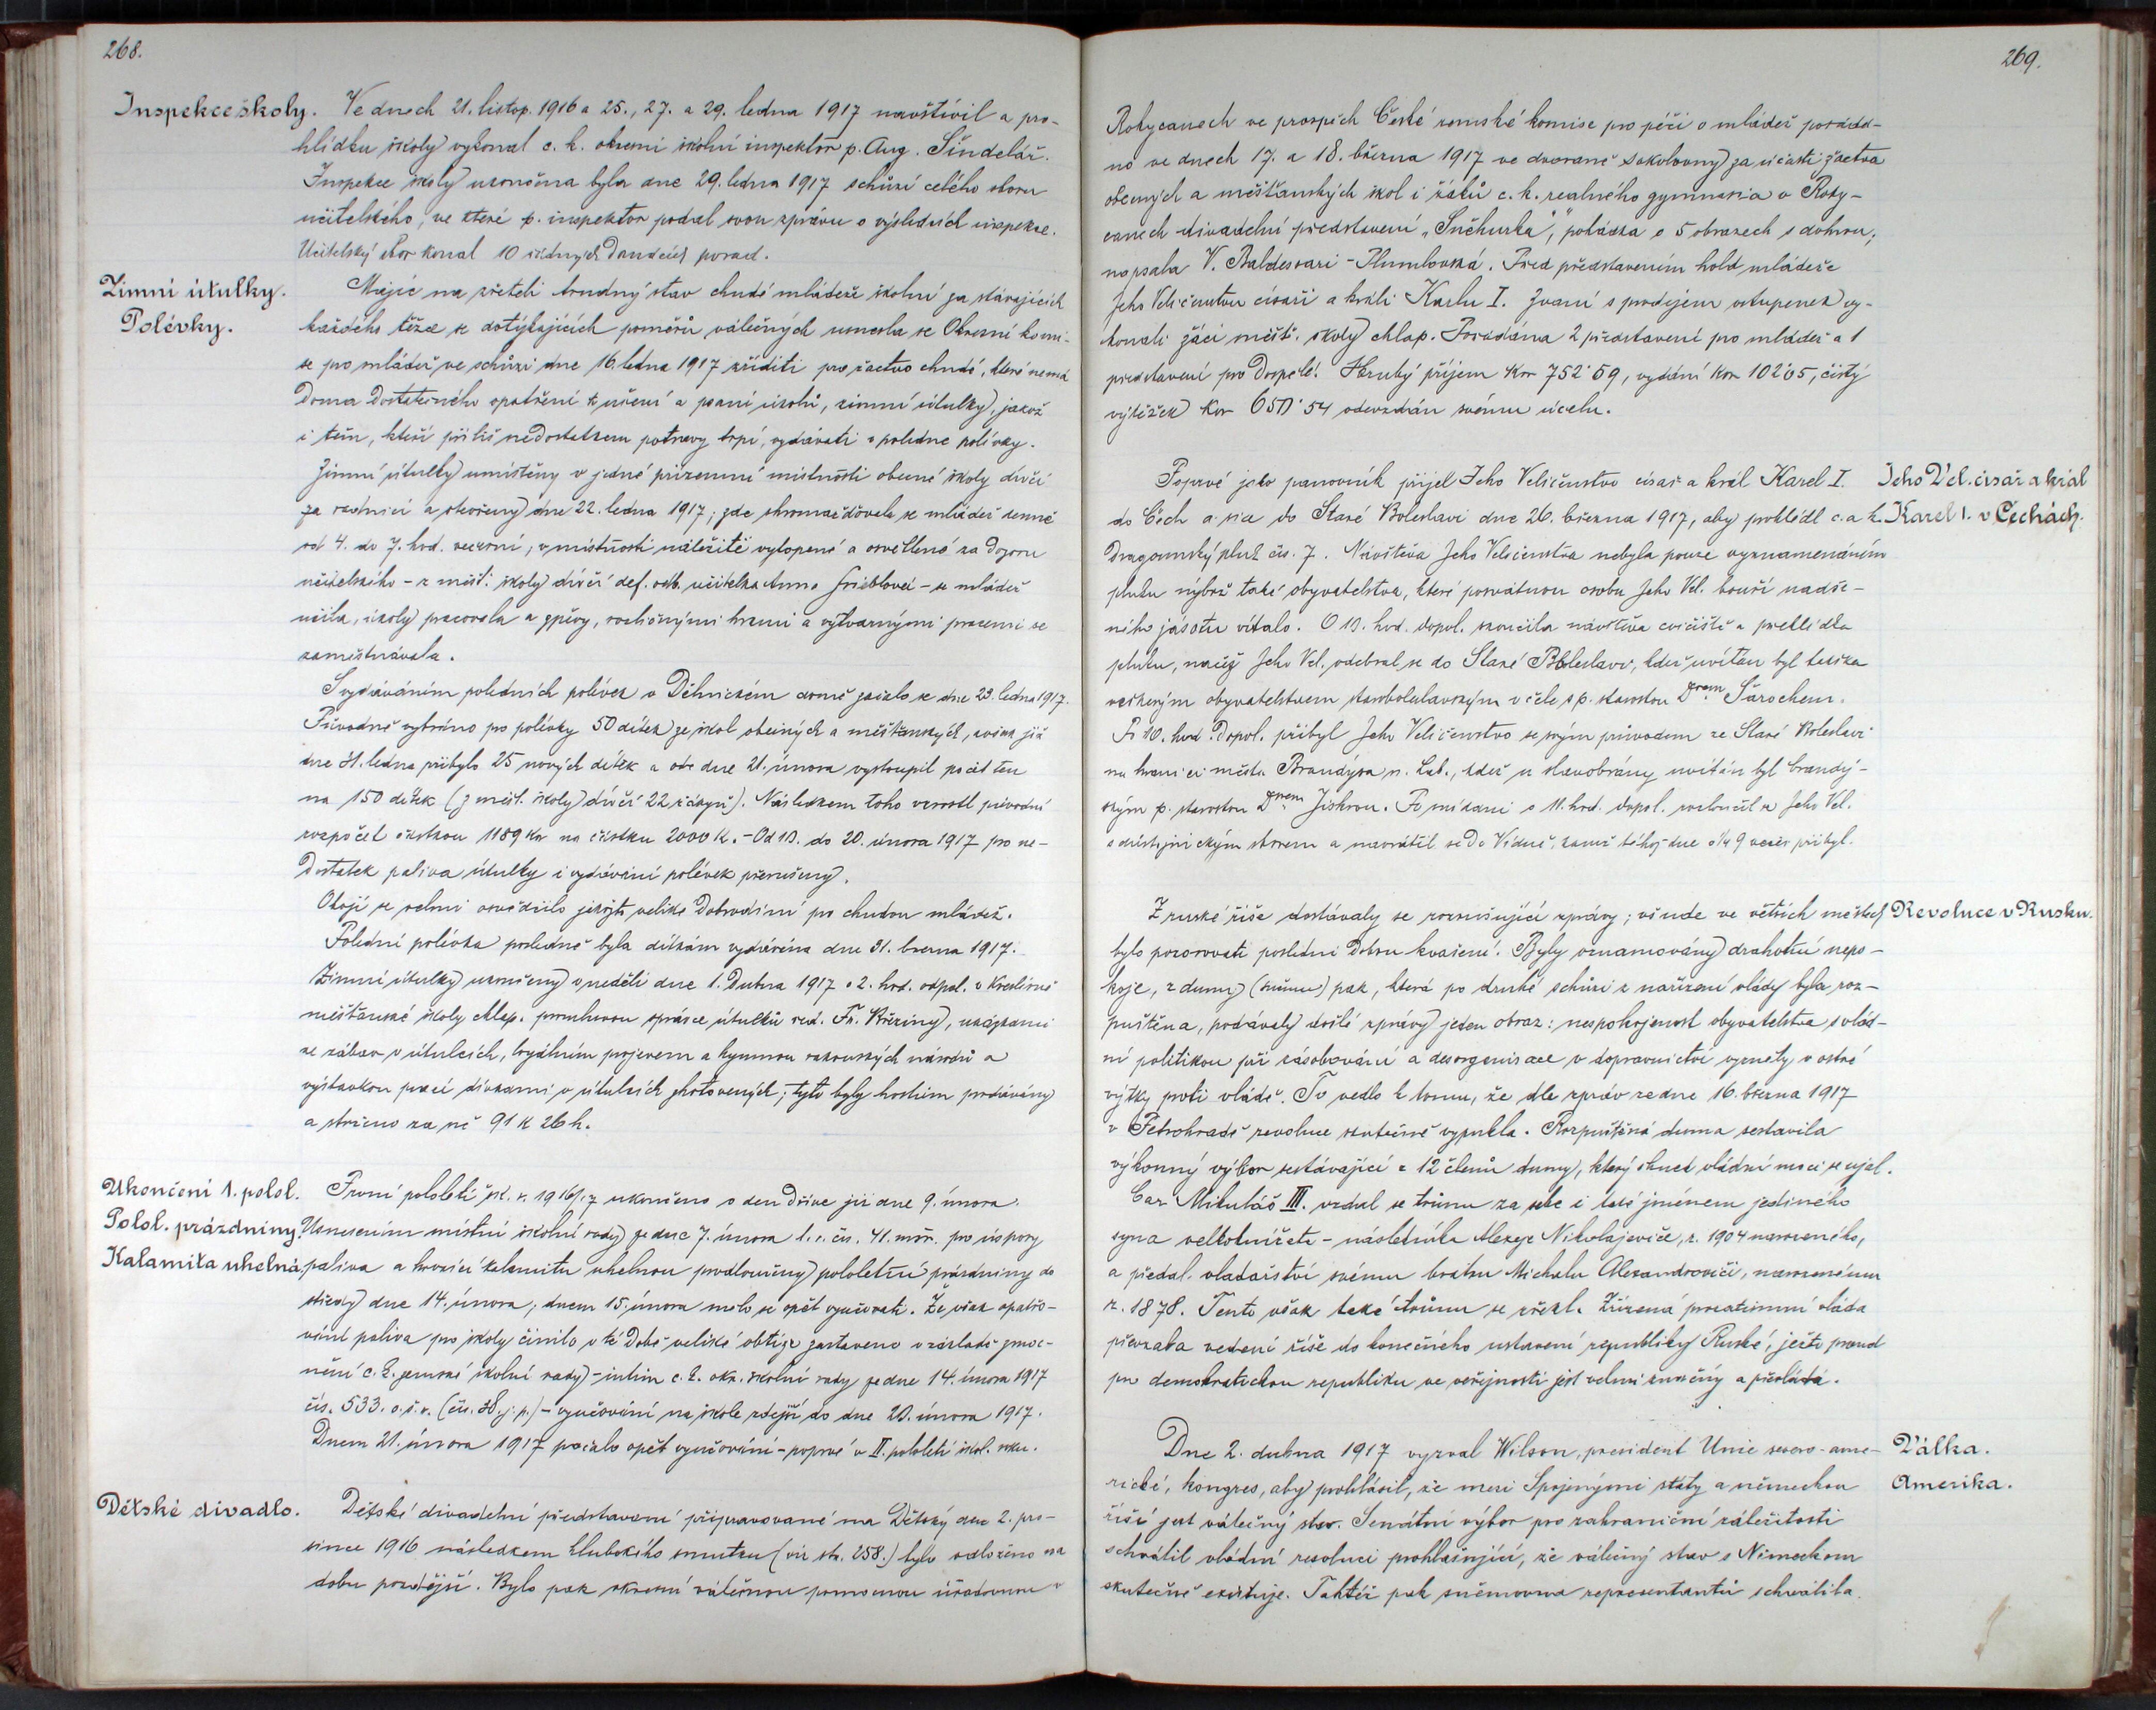 268.
Inspekce školy. Ve dnech 21. listop. 1916 a 25., 27. a 29. ledna 1917 navštívil a pro-
hlídku školy vykonal c. k. okresní školní inspektor p. Aug. Šindelář.
Inspekce školy ukončena byla dne 29. ledna 1917 schůzí celého sboru
učitelského, ve které p. inspektor podal svou zprávu o výsledcích inspekce.
Učitelský sbor konal 10 řádných porad.
Zimní útulky. Majíc na zřeteli trudný stav chudé mládeže školní za stávajících
Polévky. každého těžce se dotýkajících poměrů válečných usnesla se Okresní komi-
se pro mládež ve schůzi dne 16. ledna 1917 zříditi pro žactvo chudé, které nemá
doma dostatečného opatření k učení a psaní úkolů, zimní útulky, jakož
i těm, kteří příliš nedostatkem potravy trpí, vydávati v poledne polévky.
Zimní útulky umístěny v jedné přízemní místnosti obecné školy dívčí
za radnicí a otevřeny dne 22. ledna 1917; zde shromažďovala se mládež denně
od 4. do 7. hod. večerní, v místnosti náležitě vytopené a osvětlené za dozoru
učitelského - z měšť. školy dívčí def. odb. učitelka Anna - se mládež
učila, úkoly pracovala a zpěvy, rozličnými hrami a výtvarnými pracemi se
zaměstnávala.
S vydáváním poledních polévek v Dělnickém domě začalo se dne 23. ledna 1917.
Původně vybráno pro polévky 50 dítek ze škol obecných a měšťanských, avšak již
dne 31. ledna přibylo 25 nových dítek a ode dne 21. února vystoupil počet ten
na 150 dítek (z měšť. školy dívčí 22 žákyň). Následkem toho vzrostl původní
rozpočet částkou 1189 Kor na částku 2000 K. - Od 10. do 20. února 1917 pro ne-
dostatek paliva útulky i vydávání polévek přerušeny.
Obojí se velmi osvědčilo jakožto veliké dobrodiní pro chudou mládež.
Polední polévka posledně byla dítkám vydávána dne 31. března 1917.
Zimní útulky ukončeny v neděli dne 1. dubna 1917 o 2. hod. odpol. v kreslírně
měšťanské školy chlap. promluvou správce útulků řed. Fr. Březiny, ukázkami
ze zábav v útulcích, loyálním projevem a hymnou rakouských národů a
výstavkou prací dívkami v útulcích zhotovených; tyto byly hostům prodávány
a strženo za ně 91 K 26 h.
Ukončení 1. polol. První pololetí šk. r. 1916/17 ukončeno o den dříve již dne 9. února.
Polol. prázdniny. Usnesením místní školní rady ze dne 7. února t. r. čís. 41. mšr. pro úspory
Kalamita uhelná. paliva a hrozící kalamitu uhelnou prodlouženy pololetní prázdniny do
středy dne 14. února; dnem 15. února mělo se opět vyučovati. Že však opatřo-
vání paliva pro školy činilo v té době veliké obtíže zastaveno v základě zmoc-
nění c. k. zemské školní rady - intim c. k. okr. školní rady ze dne 14. února 1917
čís. 533. o. š. r. (čís. 38. j. p.) - vyučování na škole zdejší do dne 20. února 1917.
Dnem 21. února 1917 počalo opět vyučování - poprvé v II. pololetí škol. roku.
Dětské divadlo. Dětské divadelní představení připravované na Dětský den 2. pro-
since 1916 následkem hlubokého smutku (viz str. 258.) bylo odloženo na
dobu pozdější. Bylo pak okresní válečnou pomocnou úřadovnou v
269.
Rokycanech ve prospěch České zemské komise pro péči o mládež pořádá-
no ve dnech 17. a 18. března 1917 ve dvoraně Sokolovny za účasti žactva
obecných a měšťanských škol i žáků c. k. reálného gymnasia v Roky-
canech divadelní představení „Sněhurka", pohádka o 5 obrazech s dohrou;
napsala V. Baldessari-Plumlovská. Před představením hold mládeže
Jeho Veličenstvu císaři a králi Karlu I. Zvaní s prodejem vstupenek vy-
konali žáci měšť. školy chlap. Pořádána 2 představení pro mládež a 1
představení pro dospělé. Hrubý příjem Kor 752·59, vydání Kor 102·05, čistý
výtěžek Kor 650·54 odevzdán svému účelu.
Poprvé jako panovník přijel Jeho Veličenstvo císař a král Karel I. Jeho Vel. císař a král
do Čech a sice do Staré Boleslavi dne 26. března 1917, aby prohlédl c. a k. Karel I. v Čechách.
dragounský pluk čís. 7. Návštěva Jeho Veličenstva nebyla pouze vyznamenáním
pluku nýbrž také obyvatelstva, které posvátnou osobu Jeho Vel. bouří nadše-
ného jásotu vítalo. O 10. hod. dopol. skončila návštěva cvičiště a přehlídka
pluku, načež Jeho Vel. odebral se do Staré Boleslavi, kdež uvítán byl
veškerým obyvatelstvem staroboleslavským v čele s p. starostou Drem Šarochem.
Po 10. hod. dopol. přibyl Jeho Veličenstvo se svým průvodem ze Staré Boleslavi
na hranici města Brandýsa n. Lab., kdež u slavobrány uvítán byl brandý-
ským p. starostou Drem Jiskrou. Po snídani o 11. hod. dopol. rozloučil se Jeho Vel.
s důstojnickým sborem a navrátil se do Vídně, kamž téhož dne o 1/4 9 večer přibyl.
Z ruské říše dostávaly se rozrušující zprávy; všude ve větších městech Revoluce v Rusku.
bylo pozorovati poslední dobou kvašení. Byly oznamovány drahotní nepo-
koje, z dumy (sněmu) pak, která po druhé schůzi z nařízení vlády byla roz-
puštěna, podávaly došlé zprávy jeden obraz: nespokojenost obyvatelstva s vlád-
ní politikou při zásobování a desorganisace v dopravnictví vyzněly v ostré
výtky proti vládě. To vedlo k tomu, že dle zpráv ze dne 16. března 1917
v Petrohradě revoluce skutečně vypukla. Rozpuštěná duma sestavila
výkonný výbor sestávající z 12 členů dumy, který ihned vládní moci se ujal.
Car Mikuláš III. vzdal se trůnu za sebe i také jménem jediného
syna velkoknížete - následníka Alexeje Nikolajeviče, r. 1904 narozeného,
a předal vladařství svému bratru Michalu Alexandroviči, narozenému
r. 1878. Tento však také trůnu se zřekl. Zřízená prozatimní vláda
převzala vedení říše do konečného ustavení republiky Ruské, ježto proud
pro demokratickou republiku ve veřejnosti jest velmi značný a převládá.
Dne 2. dubna 1917 vyzval Wilson, president Unie severo-ame- Válka.
rické, kongres, aby prohlásil, že mezi Spojenými státy a německou Amerika.
říší jest válečný stav. Senátní výbor pro zahraniční záležitosti
schválil vládní resoluci prohlašující, že válečný stav s Německem
skutečně existuje. Taktéž pak sněmovna representantů schválila